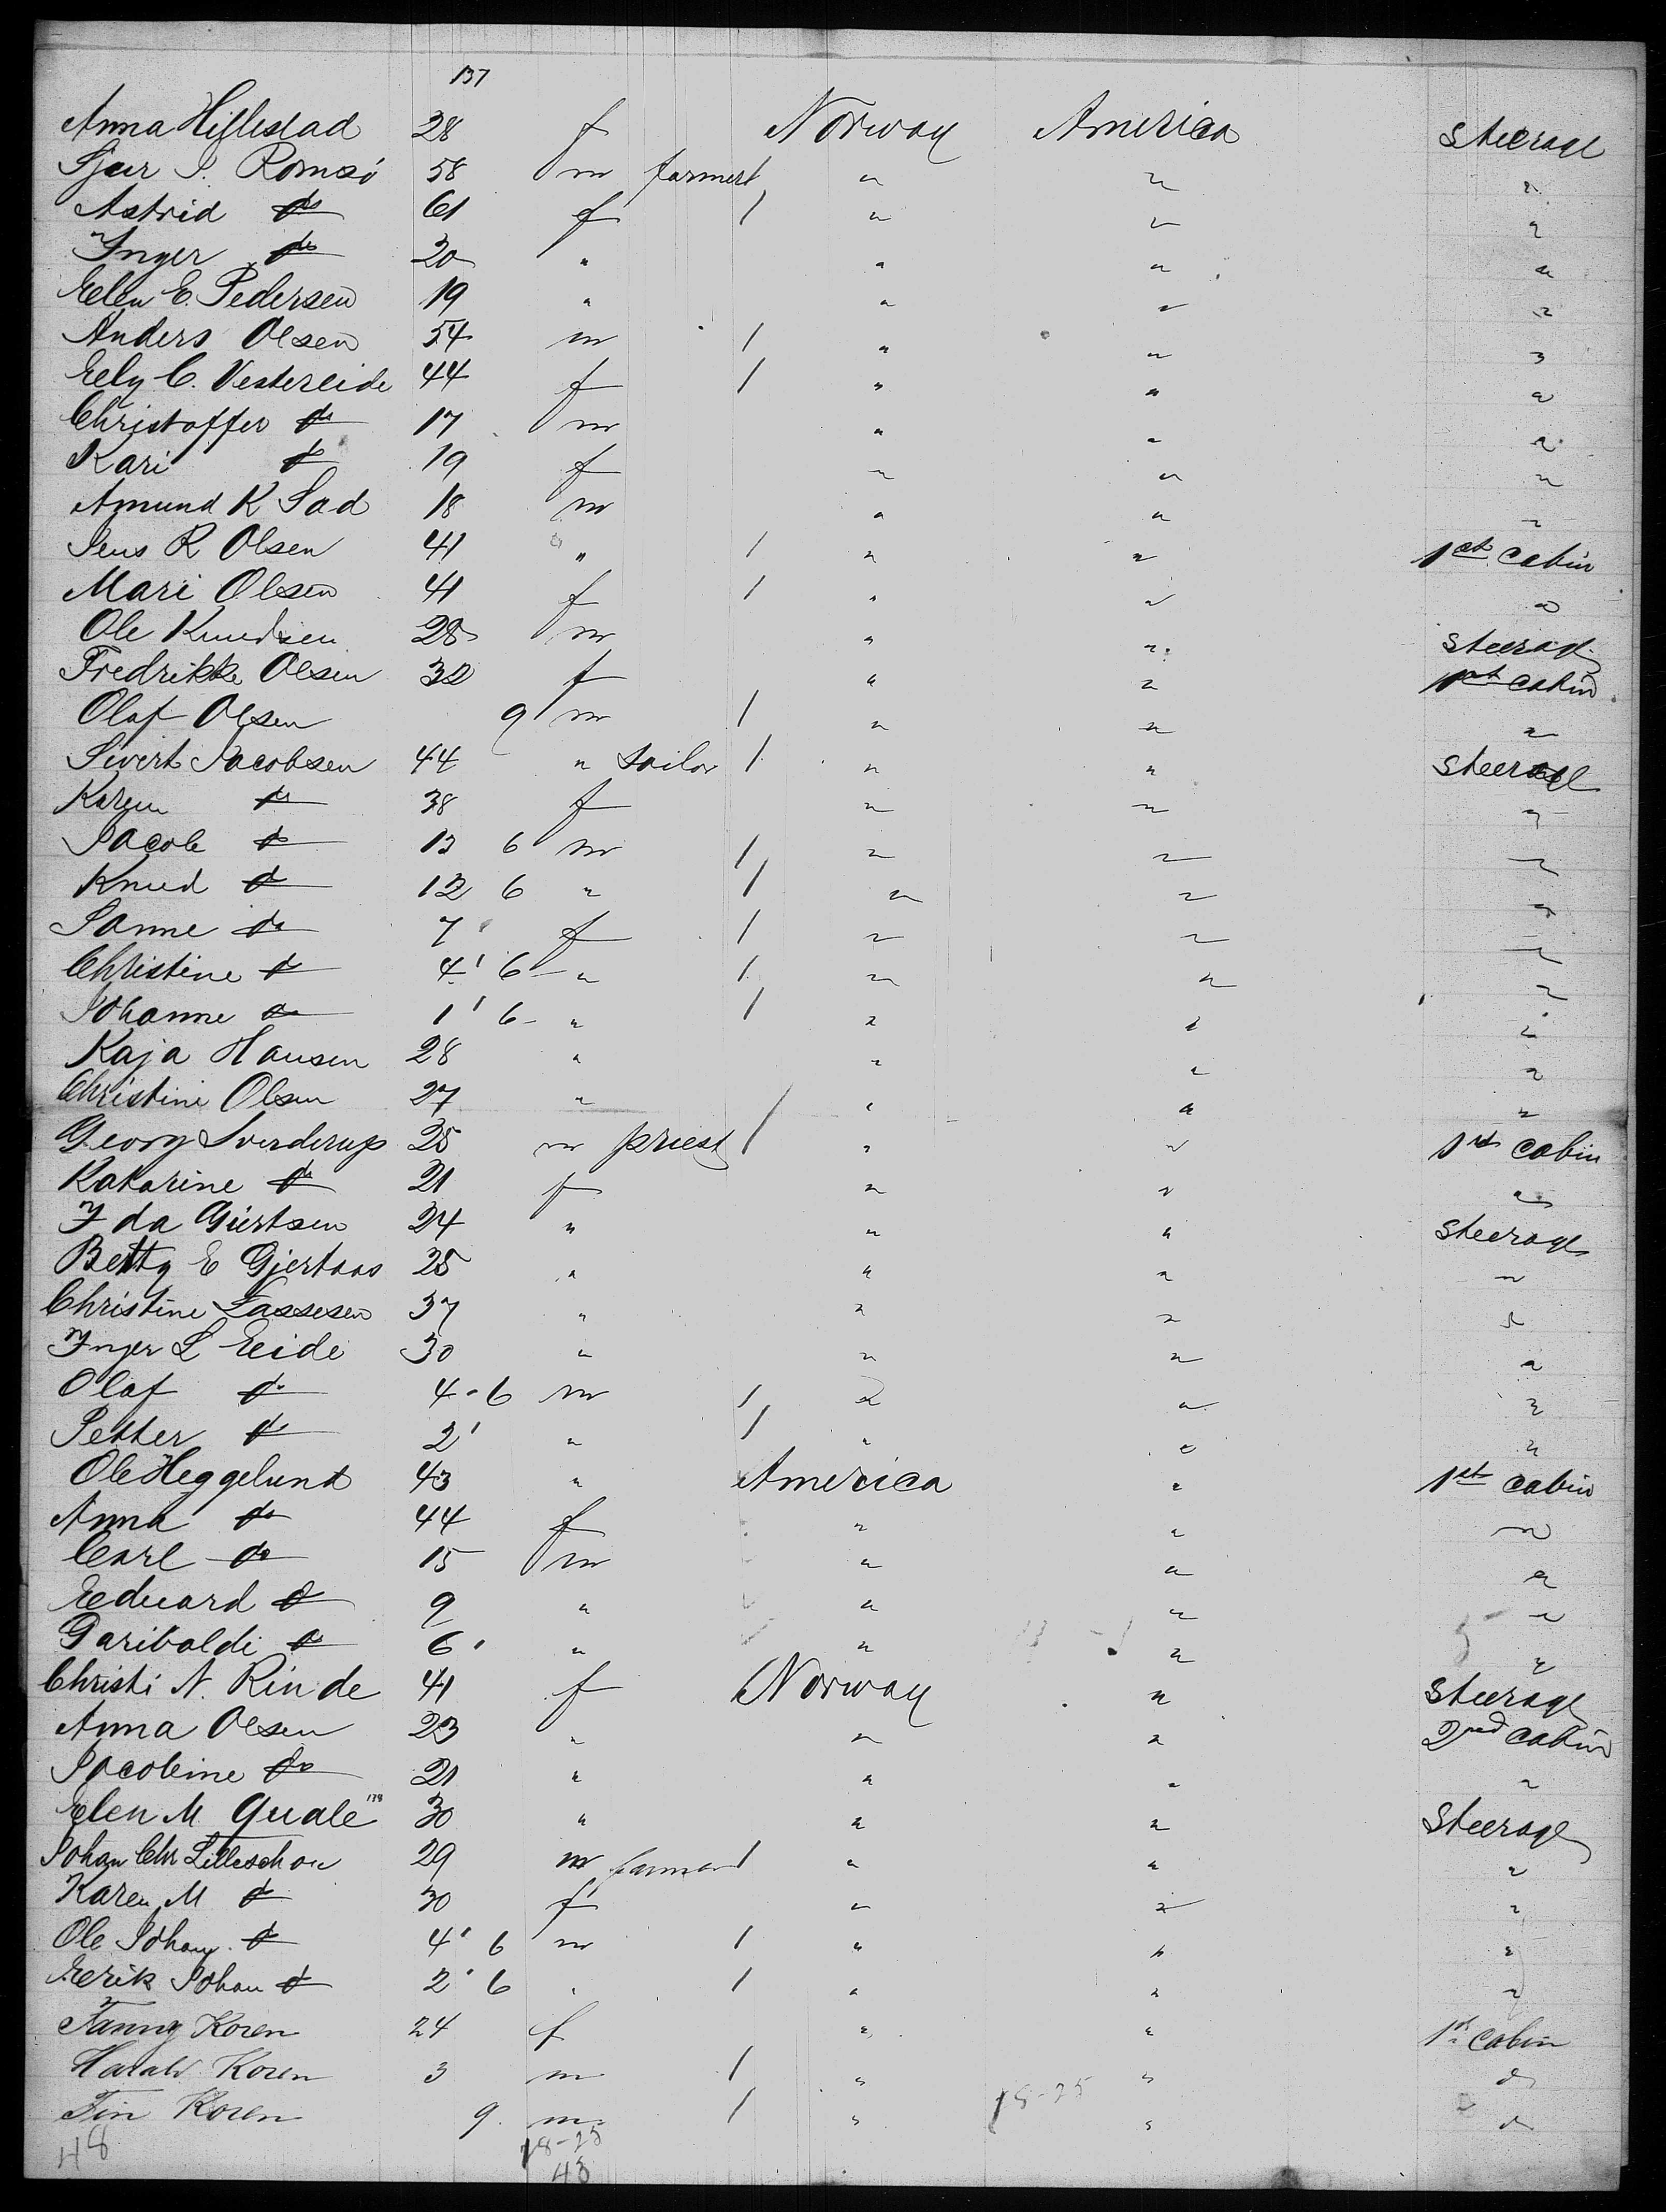 137
Anna Hillestad 28 f Norway America Steerage
Sjur S. Romsö 58 m farmer 1 " " "
Astrid do 61 f 1 " " "
Inger do 20 " " " "
Elen E. Pedersen 19 " " " "
Anders Olsen 54 m 1 " " "
Eely C. Vestereide 44 f 1 " " "
Christoffer do 17 m " " "
Kari do 19 f " " "
Amund K Sad 18 m " " "
Jens R Olsen 41 " 1 " " 1st cabin
Mari Olsen 41 f 1 " " "
Ole Knudsen 28 m " " Steerage
Fredrikke Olsen 32 f " " 1st cabin
Olaf Olsen 9 m 1 " " "
Sivert Jacobsen 44 " Sailor 1 " " Steerage
Karen do 38 f " " "
Jacob do 13 6 m 1 " " "
Knud do 12 6 " 1 " " "
Sanne do 7 f 1 " " "
Christine do 4 6 " 1 " " "
Johanne do 1 6 " 1 " " "
Kaja Hansen 28 " " " "
Christine Olsen 27 " " " "
Georg Sverderup 25 m priest 1 " " 1st cabin
Katarine do 21 f " " "
Ida Giertsen 24 " " " Steerage
Betty E Gjertaas 25 " " " "
Christine Lassesen 37 " " " "
Inger L Eeide 30 " " " "
Olaf do 4 6 m 1 " " "
Petter do 2 " 1 " " "
Ole Heggelund 43 " America " 1st cabin
Anna do 44 f " " "
Carl do 15 m " " "
Eeduard do 9 " " " "
Garibaldi do 6 " " " "
Christi N. Rinde 41 f Norway " Steerage
Anna Olsen 23 " " " 2nd cabin
Jacobine do 21 " " " "
Elen M Quale 138 30 " " " Steerage
Johan Chr Lilleskou 29 m farmer 1 " " "
Karen M do 30 f " " "
Ole Johan do 4 6 m 1 " " "
Eerik Johan do 2 6 " 1 " " "
Fanny Koren 24 f " " 1st cabin
Harald Koren 3 m 1 " " do
Fin Koren 9 m 1 " 18-25 " do
48 18-25
48